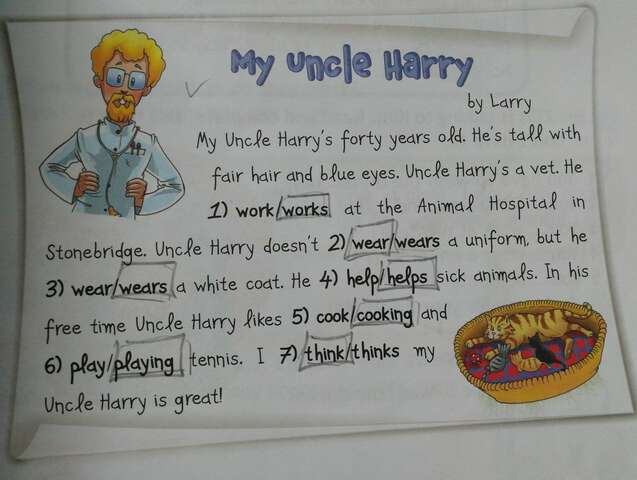 My Uncle Harry
by Larry
My Uncle Harry's forty years old. He's tall with
fair hair and blue eyes. Uncle Harry's a vet. He
1) work/works at the Animal Hospital in
Stonebridge. Uncle Harry doesn't 2) wear/wears a uniform, but he
3) wear/wears a white coat. He 4) help/helps sick animals. In his
free time Uncle Harry likes 5) cook/cooking and
6) play/playing tennis. I 7) think/thinks my
Uncle Harry is great!